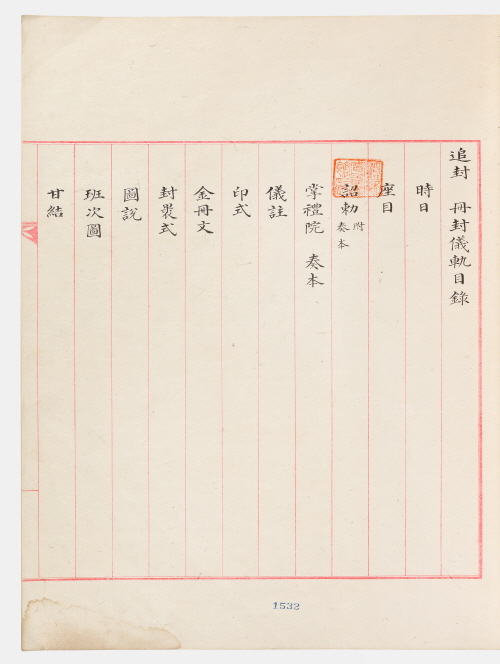 追封 冊封儀軌目錄
時日
座目
詔勅 附奏本
掌禮院 奏本
儀註
印式
金冊文
封裹式
圖說
班次圖
甘結
1532